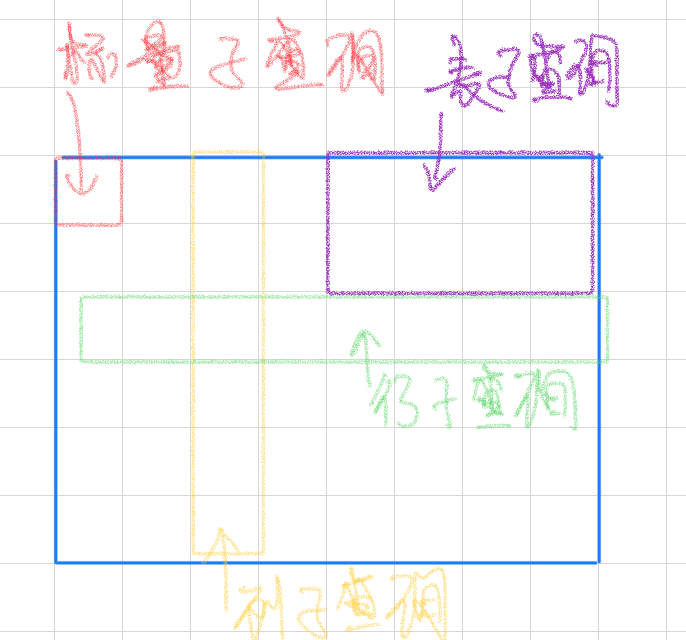 标量子查询
表子查询
行子查询
列子查询